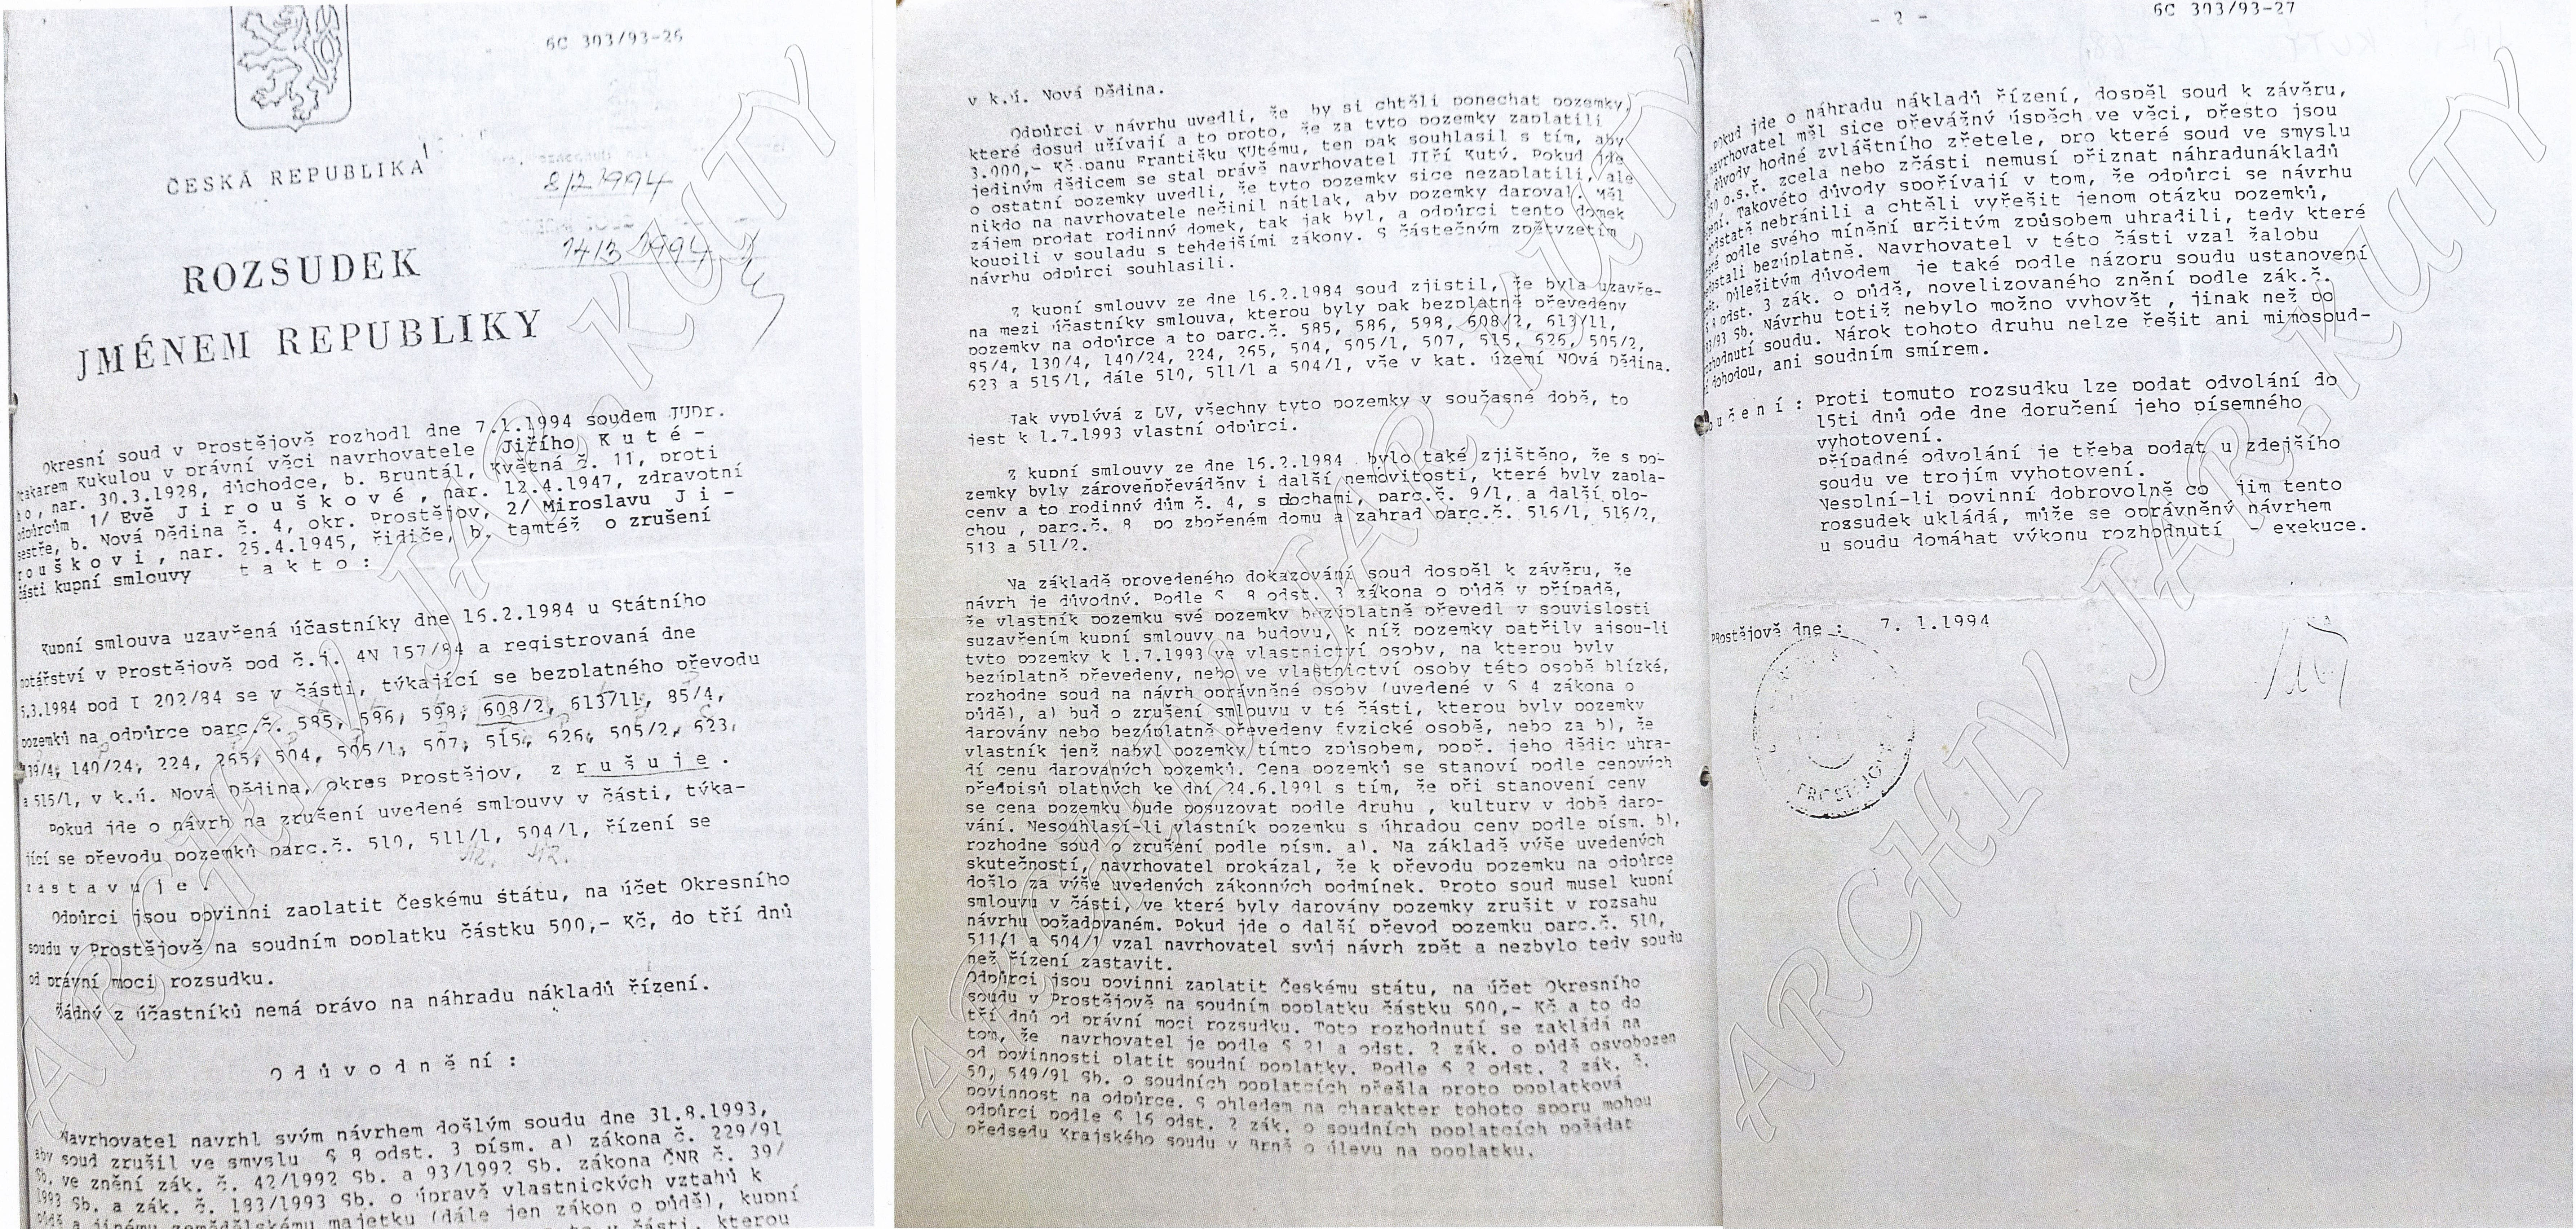 6C 303/93-26
ČESKÁ REPUBLIKA
8/2 1994
14/3 1994
ROZSUDEK
JMÉNEM REPUBLIKY
Okresní soud v Prostějově rozhodl dne 7.1.1994 soudem JUDr.
Otakarem Kukulou v právní věci navrhovatele Jiřího K u t é -
h o , nar. 30.3.1928, důchodce, b. Bruntál, Květná č. 11, proti
odpůrcům 1/ Evě J i r o u š k o v é , nar. 12.4.1947, zdravotní
sestře, b. Nová Dědina č. 4, okr. Prostějov, 2/ Miroslavu J i -
r o u š k o v i , nar. 25.4.1945, řidiče, b. tamtéž o zrušení
části kupní smlouvy t a k t o :
Kupní smlouva uzavřená účastníky dne 16.2.1984 u Státního
notářství v Prostějově pod č.j. 4N 157/84 a registrovaná dne
5.3.1984 pod I 202/84 se v části, týkající se bezplatného převodu
pozemků na odpůrce parc.č. 585, 586, 598, 608/2, 613/11, 85/4,
139/4, 140/24, 224, 265, 504, 505/1, 507, 515, 626, 505/2, 623,
a 515/1, v k.ú. Nová Dědina, okres Prostějov, z r u š u j e .
Pokud jde o návrh na zrušení uvedené smlouvy v části, týka-
jící se převodu pozemků parc.č. 510, 511/1, 504/1, řízení se
z a s t a v u j e .
Odpůrci jsou povinni zaplatit Českému státu, na účet Okresního
soudu v Prostějově na soudním poplatku částku 500,- Kč, do tří dnů
od právní moci rozsudku.
Žádný z účastníků nemá právo na náhradu nákladů řízení.
O d ů v o d n ě n í :
Navrhovatel navrhl svým návrhem došlým soudu dne 31.8.1993,
aby soud zrušil ve smyslu § 8 odst. 3 písm. a) zákona č. 229/91
Sb. ve znění zák. č. 42/1992 Sb. a 93/1992 Sb. zákona ČNR č. 39/
1993 Sb. a zák. č. 183/1993 Sb. o úpravě vlastnických vztahů k
půdě a jinému zemědělskému majetku (dále jen zákon o půdě), kupní
v části, kterou
v k.ú. Nová Dědina.
Odpůrci v návrhu uvedli, že by si chtěli ponechat pozemky,
které dosud užívají a to proto, že za tyto pozemky zaplatili
3.000,- Kč panu Františku KUtému, ten pak souhlasil s tím, aby
jediným dědicem se stal právě navrhovatel JIří Kutý. Pokud jde
o ostatní pozemky uvedli, že tyto pozemky sice nezaplatili, ale
nikdo na navrhovatele nečinil nátlak, aby pozemky daroval. Měl
zájem prodat rodinný domek, tak jak byl, a odpůrci tento domek
koupili v souladu s tehdejšími zákony. S částečným zpětvzetím
návrhu odpůrci souhlasili.
Z kupní smlouvy ze dne 16.2.1984 soud zjistil, že byla uzavře-
na mezi účastníky smlouva, kterou byly pak bezplatně převedeny
pozemky na odpůrce a to parc.č. 585, 586, 598, 608/2, 613/11,
85/4, 130/4, 140/24, 224, 265, 504, 505/1, 507, 515, 626, 505/2,
623 a 515/1, dále 510, 511/1 a 504/1, vše v kat. území NOvá Dědina.
Jak vyplývá z LV, všechny tyto pozemky v současné době, to
jest k 1.7.1993 vlastní odpůrci.
Z kupní smlouvy ze dne 16.2.1984 bylo také zjištěno, že s po-
zemky byly zároveňpřeváděny i další nemovitosti, které byly zapla-
ceny a to rodinný dům č. 4, s plochami, parc.č. 9/1, a další plo-
chou , parc.č. 8 po zbořeném domu a zahrad parc.č. 516/1, 516/2,
513 a 511/2.
Na základě provedeného dokazování soud dospěl k závěru, že
návrh je důvodný. Podle § 8 odst. 3 zákona o půdě v případě,
že vlastník pozemku své pozemky bezúplatně převedl v souvislosti
suzavřením kupní smlouvy na budovu, k níž pozemky patřily ajsou-li
tyto pozemky k 1.7.1993 ve vlastnictví osoby, na kterou byly
bezúplatně převedeny, nebo ve vlastnictví osoby této osobě blízké,
rozhodne soud na návrh oprávněné osoby (uvedené v § 4 zákona o
půdě), a) buď o zrušení smlouvu v té části, kterou byly pozemky
darovány nebo bezúplatně převedeny fyzické osobě, nebo za b), že
vlastník jenž nabyl pozemky tímto způsobem, popř. jeho dědic uhra-
dí cenu darovaných pozemků. Cena pozemků se stanoví podle cenových
předpisů platných ke dni 24.6.1991 s tím, že při stanovení ceny
se cena pozemku bude posuzovat podle druhu , kultury v době daro-
vání. Nesouhlasí-li vlastník pozemku s úhradou ceny podle písm. b),
rozhodne soud o zrušení podle písm. a). Na základě výše uvedených
skutečností, navrhovatel prokázal, že k převodu pozemku na odpůrce
došlo za výše uvedených zákonných podmínek. Proto soud musel kupní
smlouvu v části, ve které byly darovány pozemky zrušit v rozsahu
návrhu požadovaném. Pokud jde o další převod pozemku parc.č. 510,
511/1 a 504/1 vzal navrhovatel svůj návrh zpět a nezbylo tedy soudu
než řízení zastavit.
Odpůrci jsou povinni zaplatit Českému státu, na účet Okresního
soudu v Prostějově na soudním poplatku částku 500,- Kč a to do
tří dnů od právní moci rozsudku. Toto rozhodnutí se zakládá na
tom, že navrhovatel je podle § 21 a odst. 2 zák. o půdě osvobozen
od povinnosti platit soudní poplatky. Podle § 2 odst. 2 zák. č.
50, 549/91 Sb. o soudních poplatcích přešla proto poplatková
povinnost na odpůrce. S ohledem na charakter tohoto sporu mohou
odpůrci podle § 16 odst. 2 zák. o soudních poplatcích požádat
předsedu Krajského soudu v Brně o úlevu na poplatku.
- 2 -
6C 303/93-27
Pokud jde o náhradu nákladů řízení, dospěl soud k závěru,
navrhovatel měl sice převážný úspěch ve věci, přesto jsou
důvody hodné zvláštního zřetele, pro které soud ve smyslu
o.s.ř. zcela nebo zčásti nemusí přiznat náhradunákladů
Takovéto důvody spořívají v tom, že odpůrci se návrhu
podstatě nebránili a chtěli vyřešit jenom otázku pozemků,
podle svého mínění určitým způsobem uhradili, tedy které
nedostali bezúplatně. Navrhovatel v této části vzal žalobu
Důležitým důvodem je také podle názoru soudu ustanovení
§ 8 odst. 3 zák. o půdě, novelizovaného znění podle zák.č.
183/93 Sb. Návrhu totiž nebylo možno vyhovět , jinak než po
rozhodnutí soudu. Nárok tohoto druhu nelze řešit ani mimosoud-
dohodou, ani soudním smírem.
Poučení : Proti tomuto rozsudku lze podat odvolání do
15ti dnů ode dne doručení jeho písemného
vyhotovení.
Případné odvolání je třeba podat u zdejšího
soudu ve trojím vyhotovení.
Nesplní-li povinní dobrovolně co jim tento
rozsudek ukládá, může se oprávněný návrhem
u soudu domáhat výkonu rozhodnutí - exekuce.
PRostějově dne : 7. 1.1994
ARCHIV JAR. KUTY
ARCHIV JAR. KUTY
ARCHIV JAR. KUTY